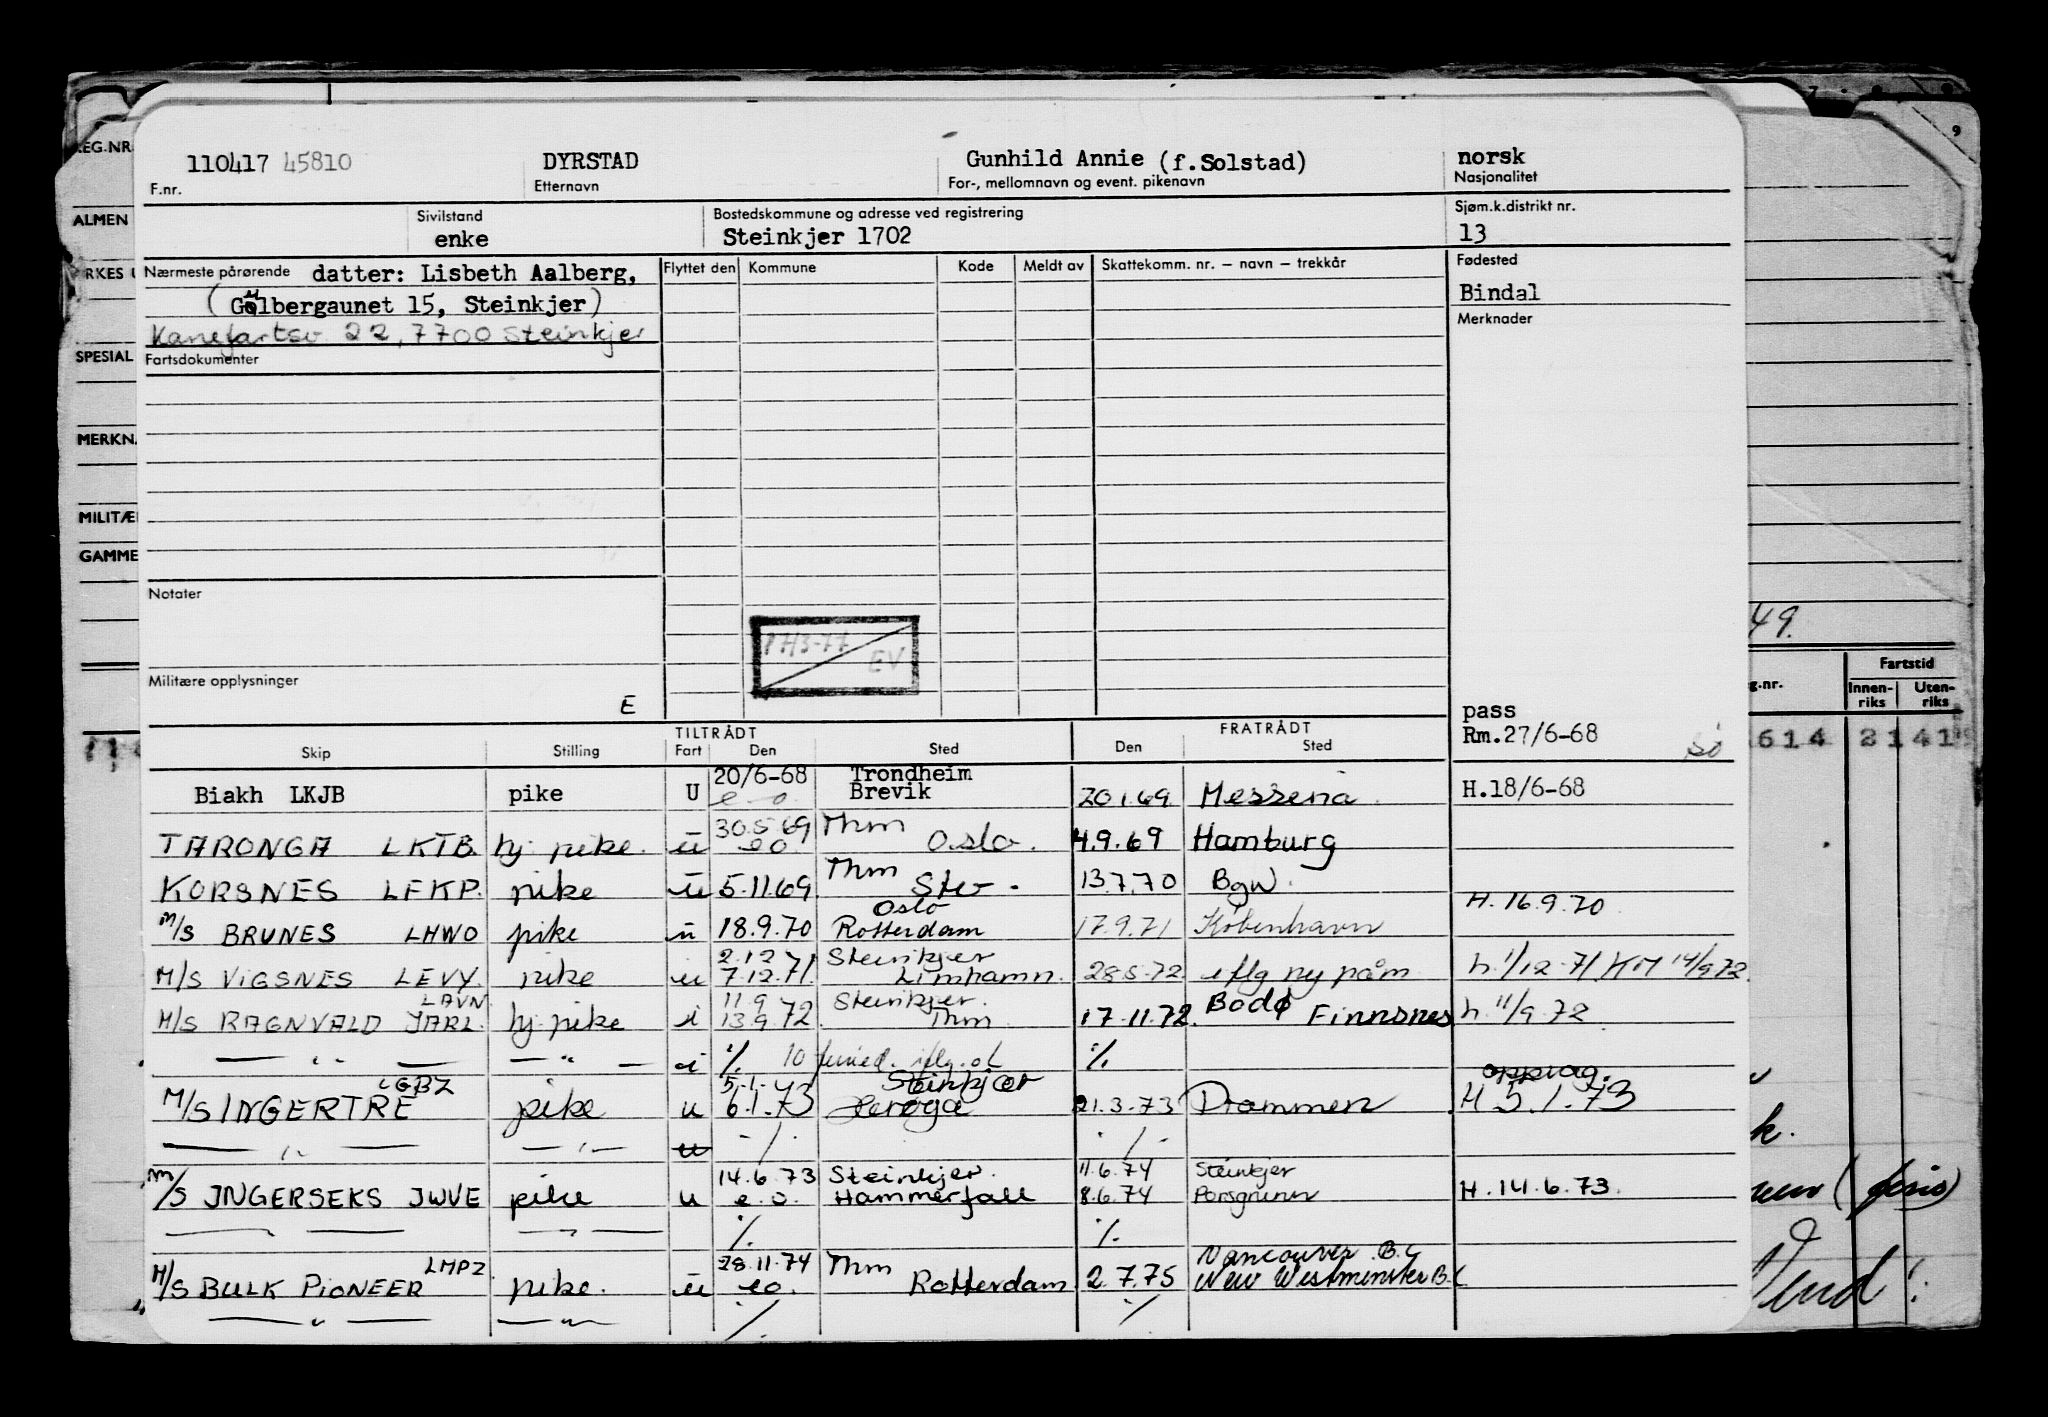 110417 45810 DYRSTAD Gunhild Annie (f.Solstad) norsk
F.nr. Etternavn For-, mellomnavn og event. pikenavn Nasjonalitet
Sivilstand Bostedskommune og adresse ved registrering Sjøm.k.distrikt nr.
enke Steinkjer 1702 13
Nærmeste pårørende datter: Lisbeth Aalberg, Flyttet den Kommune Kode Meldt av Skattekomm. nr. – navn – trekkår Fødested
(Gulbergaunet 15, Steinkjer) Bindal
Kanefartsv. 22, 7700 Steinkjer Merknader
Fartsdokumenter
Notater
PH3-77 EV
Militære opplysninger
E
pass
Rm.27/6-68
TILTRÅDT FRATRÅDT
Skip Stilling Fart Den Sted Den Sted
20/6-68 Trondheim
Biakh LKJB pike U e o Brevik 20 1.69 Messena. H.18/6-68
30.5 69 Thm
TARONGA LKTB. hj. pike. u eo. Oslo. 4.9.69 Hamburg
Thm
KORSNES LFKP. pike u 5.11.69. 13.7.70 Bgw.
Oslo H. 16.9.70
M/S BRUNES LHWO pike u 18.9.70 Rotterdam 17.9.71 København
2.12 Steinkjer
M/S VIGSNES LEVY. pike u 7.12.71. Limhamn. 28.5.72. iflg ny påm h. 1/12-71 KM 14/9 72
LAVN 11.9 Steinkjer. Bodø
M/S RAGNVALD JARL. hj. pike i 13.9.72. Thm. 17.11.72. Finnsnes h. 11/9.72
— " — — " — i ./. 10 ./.
LGBZ 5.1. Steinkjer opprag.
M/S INGERTRE pike u 6.1.73 Herøya 21.3.73 Drammen H 5.1.73
— " — — " — u ./. ./.
14.6.73 Steinkjer. 11.6.74 Steinkjer
M/S INGERSEKS JWVE pike u e.o. Hammerfall 8.6.74 Porsgrunn H. 14.6.73.
— " — — " — ./. ./.
LMPZ 28.11.74 Thm Vancouver B.C
M/S BULK PIONEER pike. u eo. Rotterdam. 2.7.75 New Westminster B.C
— " — — " — ./. ./.
REG.NR.
ALMEN
SPESIAL
MERKNA
MILITÆ
GAMME
9
49.
g.nr.
Fartstid
Innen-
riks
Uten-
riks
614 2141
k.
Vend!